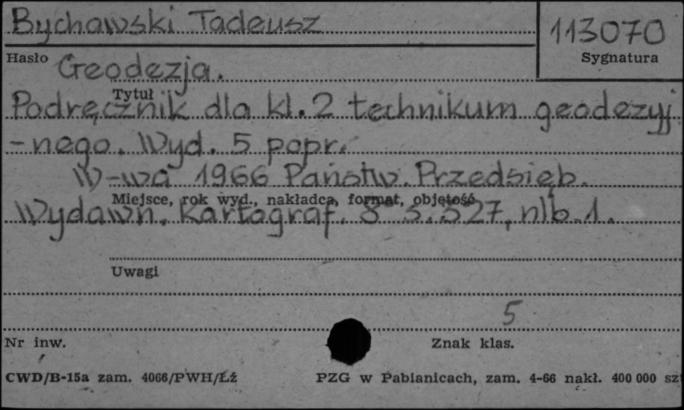 Bychawski Tadeusz
113070
Hasło
Sygnatura
Geodezja.
Tytuł
Podręcznik dla kl. 2 technikum geodezyj
-nego. Wyd. 5 popr.
W-wa 1966 Państw. Przedsięb.
Miejsce, rok wyd., nakładca, format, objętość
Wydawn. Kartograf. 8° s. 327, nlb. 1.
Uwagi
5
Nr inw.
Znak klas.
CWD/B-15a zam. 4066/PWH/Łź
PZG w Pabianicach, zam. 4-66 nakł. 400 000 sz